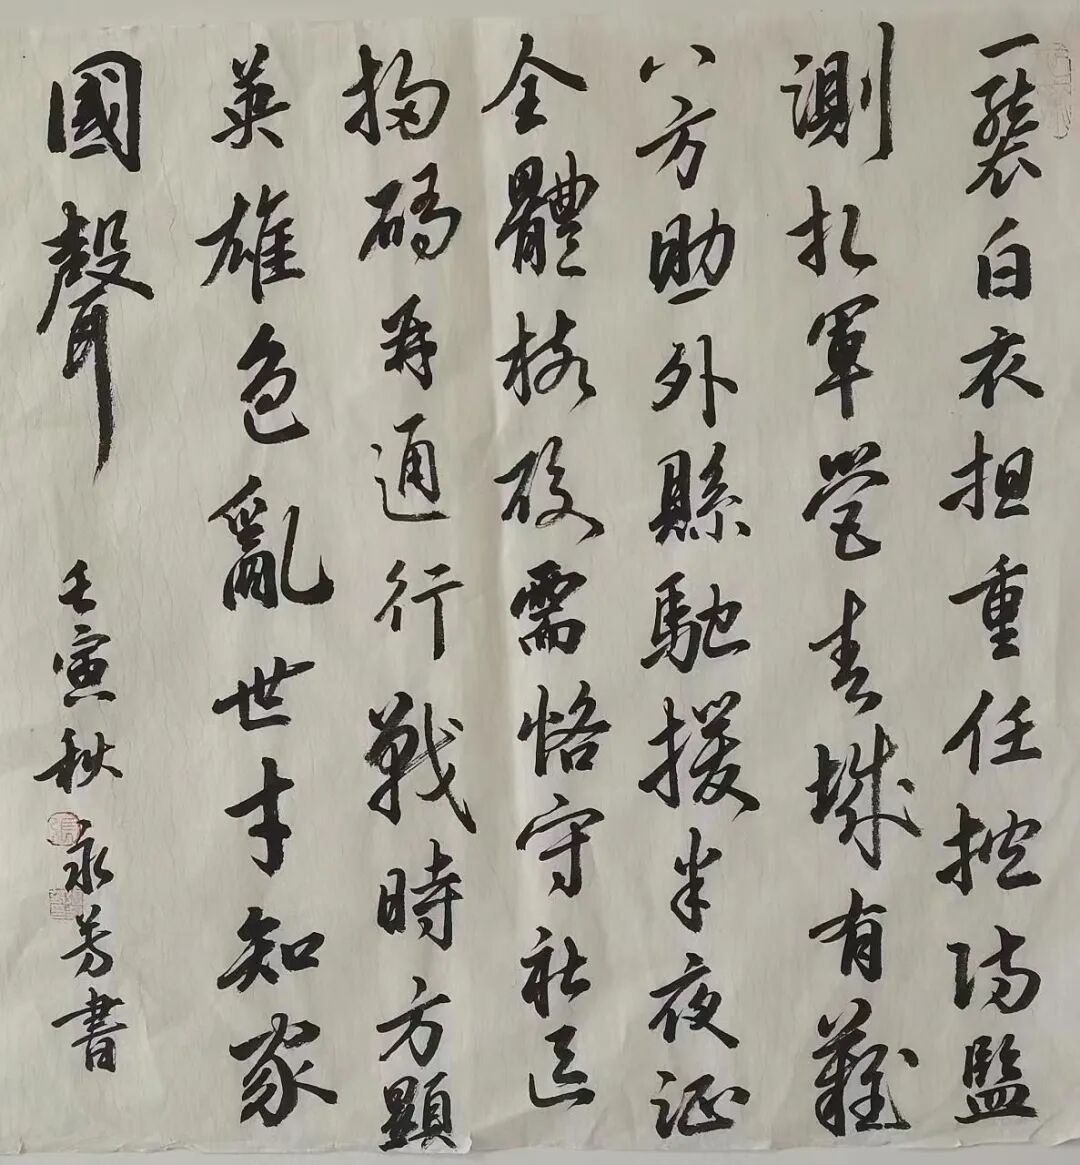 一襲白衣担重任控防監
測扎軍營春城有難
八方助外縣馳援半夜征
全體核酸需恪守社區
掃碼再通行戰時方顯
英雄色亂世才知家
國聲
壬寅秋永芳書